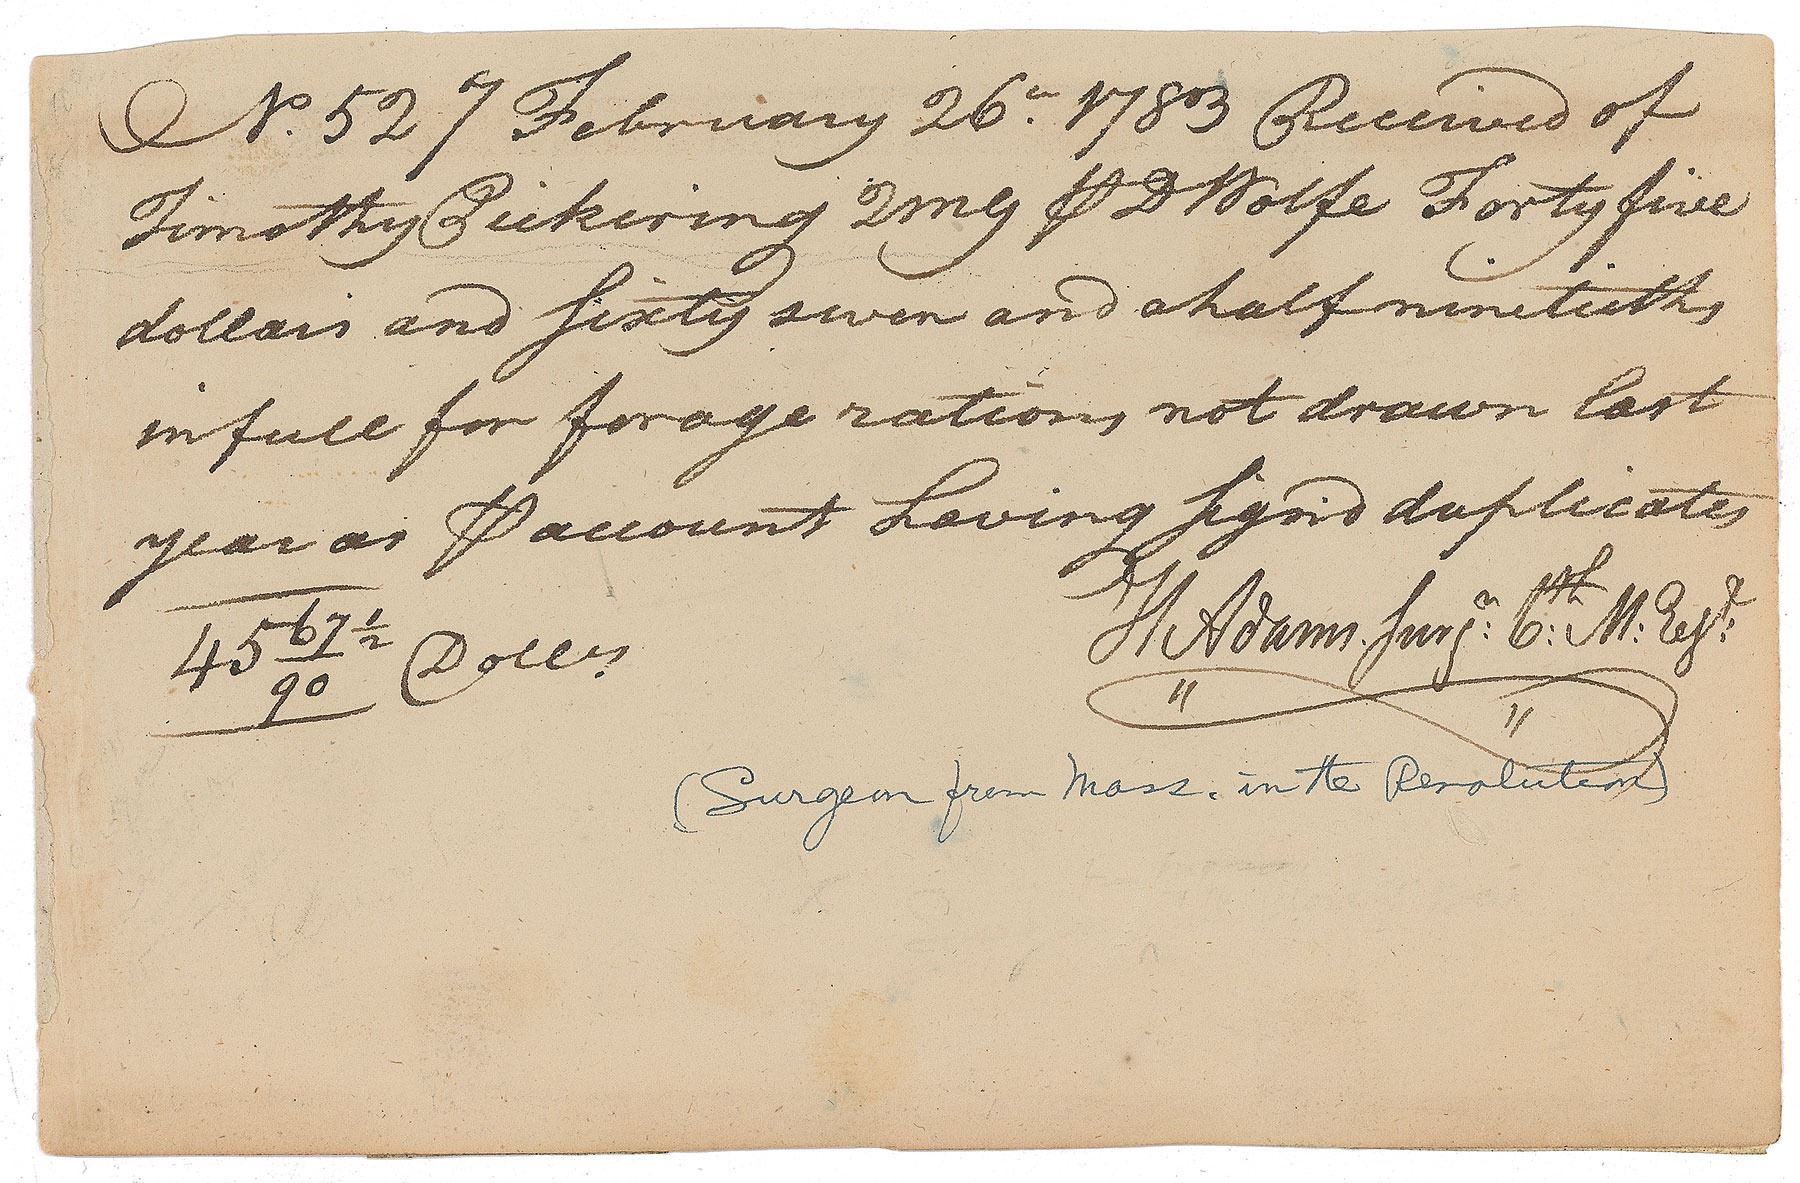 No. 527 February 26th. 1783 Received of
Timothy Pickering QMG ⅌ D Wolfe Forty five
dollars and sixty seven and a half ninetieths
in full for forage rations not drawn last
year as ⅌ account having sign'd duplicates
45 67½/90 Dollrs
H Adams. Surgn: 6th: M: Regt:
(Surgeon from Mass. in the Revolution)